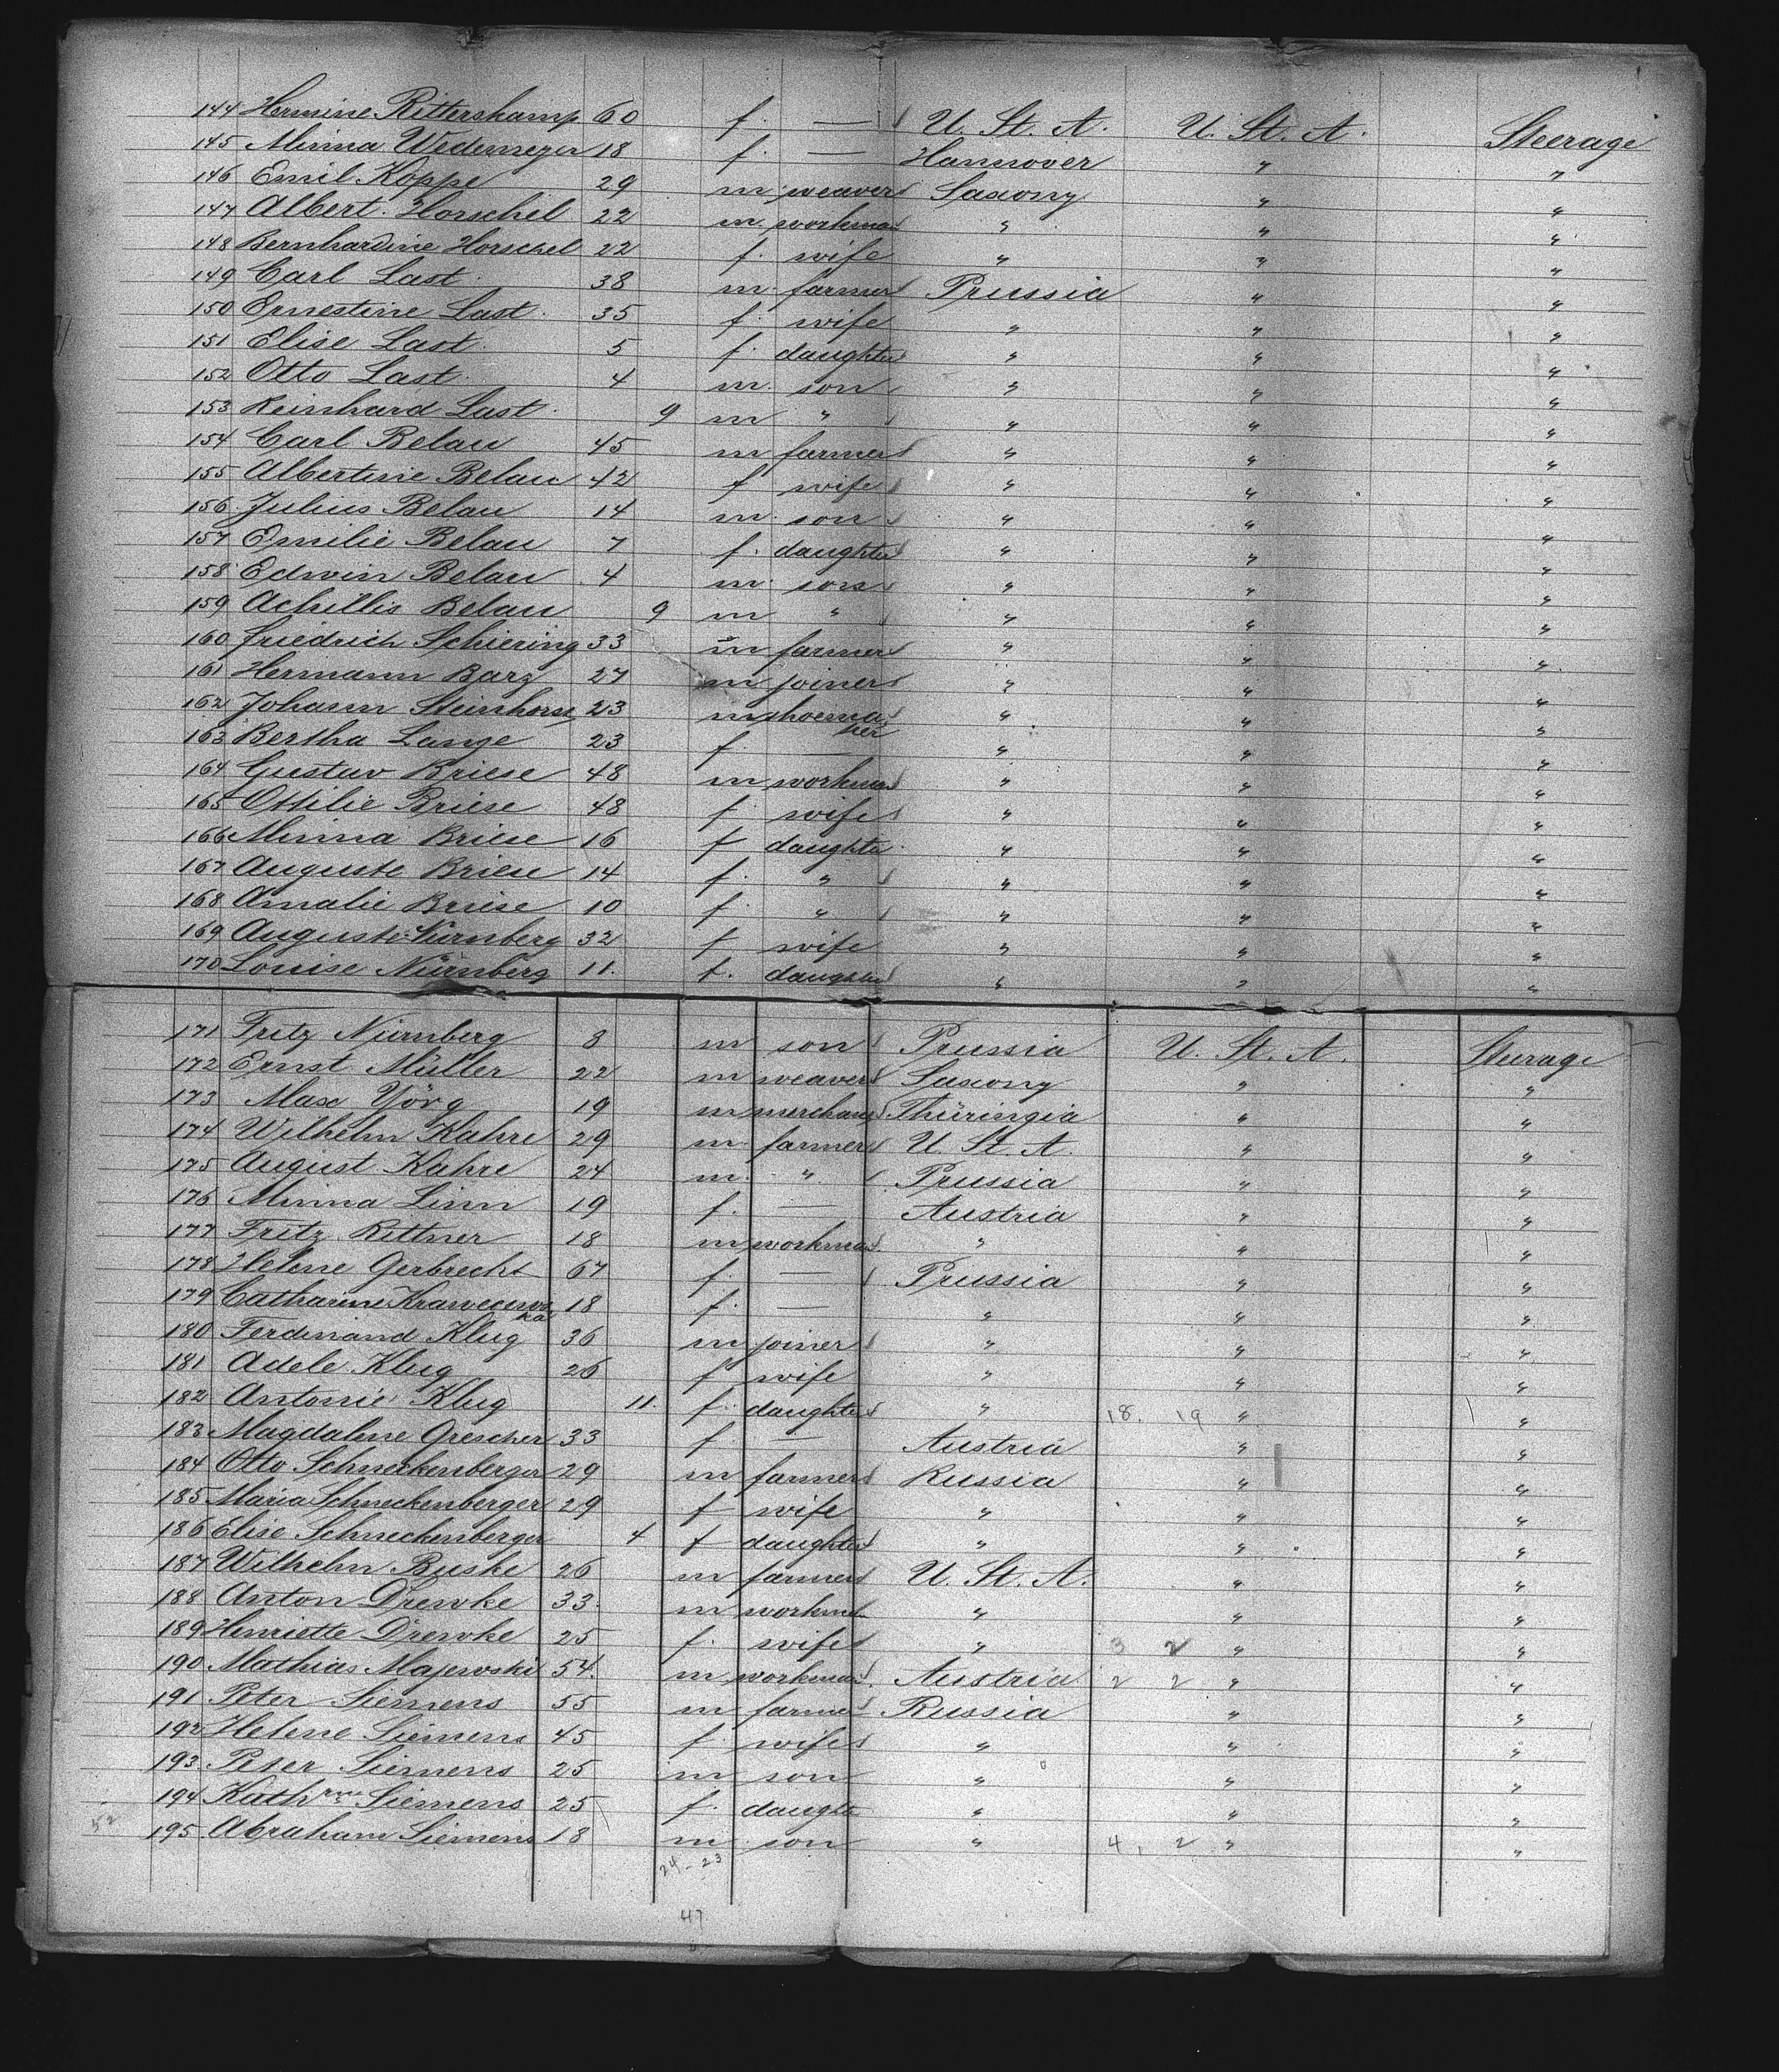 144 Hermine Ritterskamp 60 f. — U. St. A. U. St. A. Steerage
145 Minna Wedemeyer 18 f. — Hannover " "
146 Emil Koppe 29 m weaver Saxony " "
147 Albert Horschel 22 m. workman " " "
148 Bernhardine Horschel 22 f. wife " " "
149 Carl Last 38 m. farmer Prussia " "
150 Ernestine Last 35 f. wife " " "
151 Elise Last 5 f. daughter " " "
152 Otto Last 4 m. son " " "
153 Reinhard Last 9 m " " " "
154 Carl Belau 45 m farmer " " "
155 Albertine Belau 42 f wife " " "
156 Julius Belau 14 m. son " " "
157 Emilie Belau 7 f. daughter " " "
158 Edwin Belau 4 m. son " " "
159 Achillis Belau 9 m " " " "
160 Friedrich Schiering 33 m farmer " " "
161 Hermann Barz 27 m joiner " " "
162 Johann Steinhorst 23 m shoemaker " " "
163 Bertha Lange 23 f. — " " "
164 Gustav Briese 48 m workman " " "
165 Ottilie Briese 48 f. wife " " "
166 Minna Briese 16 f daughter " " "
167 Auguste Briese 14 f. " " " "
168 Amalie Briese 10 f. " " " "
169 Auguste Nürnberg 32 f wife " " "
170 Louise Nürnberg 11. f. daughter " " "
171 Fritz Nürnberg 8 m son Prussia U. St. A. Steerage
172 Ernst Müller 22 m weaver Saxony " "
173 Max Yörg 19 m merchant Thüringia " "
174 Wilhelm Kahre 29 m. farmer U. St. A. " "
175 August Kahre 24 m. " Prussia " "
176 Minna Linn 19 f. — Austria " "
177 Fritz Rittner 18 m workman " " "
178 Helene Gerbrecht 67 f. — Prussia " "
179 Catharine 18 f. — " " "
180 Ferdinand Klug 36 m joiner " " "
181 Adele Klug 26 f wife " " "
182 Antonie Klug 11. f. daughter " 18. 19 " "
183 Magdalene Grescher 33 f — Austria " "
184 Otto Schneckenberger 29 m farmer Russia " "
185 Maria Schneckenberger 29 f wife " " "
186 Elise Schneckenberger 4 f daughter " " "
187 Wilhelm Buske 26 m farmer U. St. A. " "
188 Anton Drewke 33 m workm " " "
189 Henriette Drewke 25 f. wife " 3 2 " "
190 Mathias Majewski 54. m workman Austria 2 2 " "
191 Peter Siemens 55 m farmer Russia " "
192 Helene Siemens 45 f. wife " " "
193 Peter Siemens 25 m son " " "
194 Kathrne Siemens 25 f. daughte " " "
52 195 Abraham Siemens 18 m son " 4, 2 " "
24 - 23
47